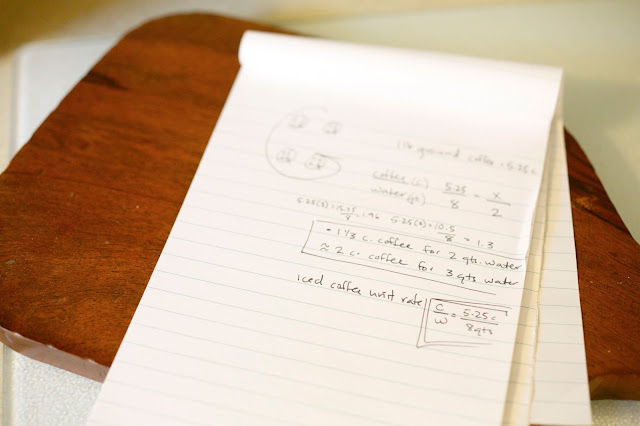 1 lb ground coffee = 5.25c.
coffee (c) 5.25 = x
water (qt) 8 2
5.25(3) = 15.75 5.25(2) = 10.5
8 = 1.96 8 = 1.3
= 1 1/3 c. coffee for 2 qts. water
≈ 2 c. coffee for 3 qts water
iced coffee unit rate C = 5.25c
W 8qts